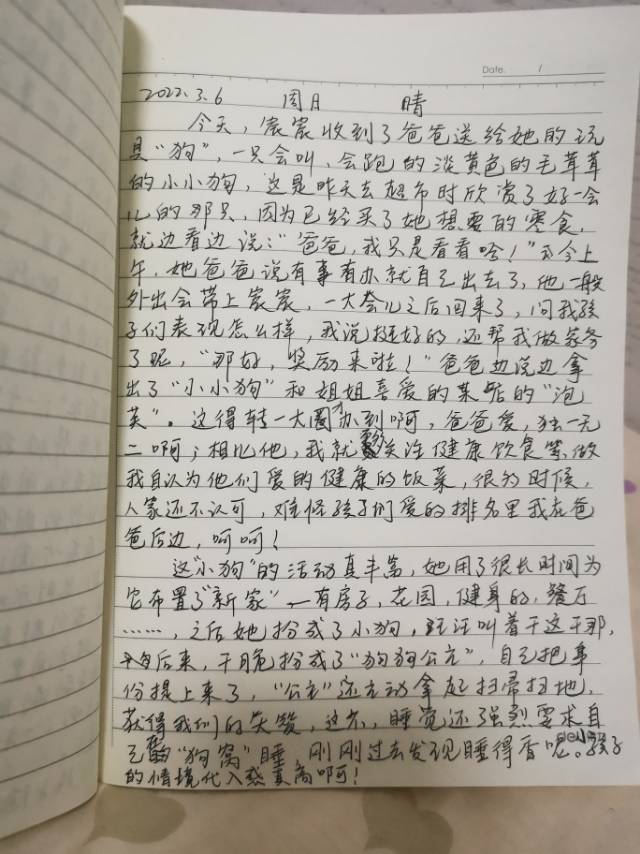 Date. /
2022.3.6 周日 晴
今天，宸宸收到了爸爸送给她的玩
具“狗”，一只会叫、会跑的淡黄色的毛茸茸
的小小狗，这是昨天去超市时欣赏了好一会
儿的那只，因为已经买了她想要的零食，
就边看边说：“爸爸，我只是看看哈！”今上
午，她爸爸说有事有办就自己出去了，他一般
外出会带上宸宸，一大会儿之后回来了，问我孩
子们表现怎么样，我说挺好的，还帮我做家务
了呢，“那好，奖励来啦！”爸爸边说边拿
出了“小小狗”和姐姐喜爱的某店的“泡
芙”。这得转一大圈才办到啊，爸爸爱，独一无
二啊；相比他，我就关注健康饮食等，做
我自认为他们爱的健康的饭菜，很多时候，
人家还不认可，难怪孩子们爱的排名里我在爸
爸后边，呵呵！
这“小狗”的活动真丰富，她用了很长时间为
它布置了“新家”—有房子，花园，健身的，餐厅
……，之后她扮成了小狗，汪汪叫着干这干那，
后来，干脆扮成了“狗狗公主”，自己把身
份提上来了，“公主”还主动拿起扫帚扫地，
获得我们的点赞，这不，睡觉还强烈要求自
己在“狗窝”睡，刚刚过去发现睡得香呢。孩子
的情境代入感真高啊！